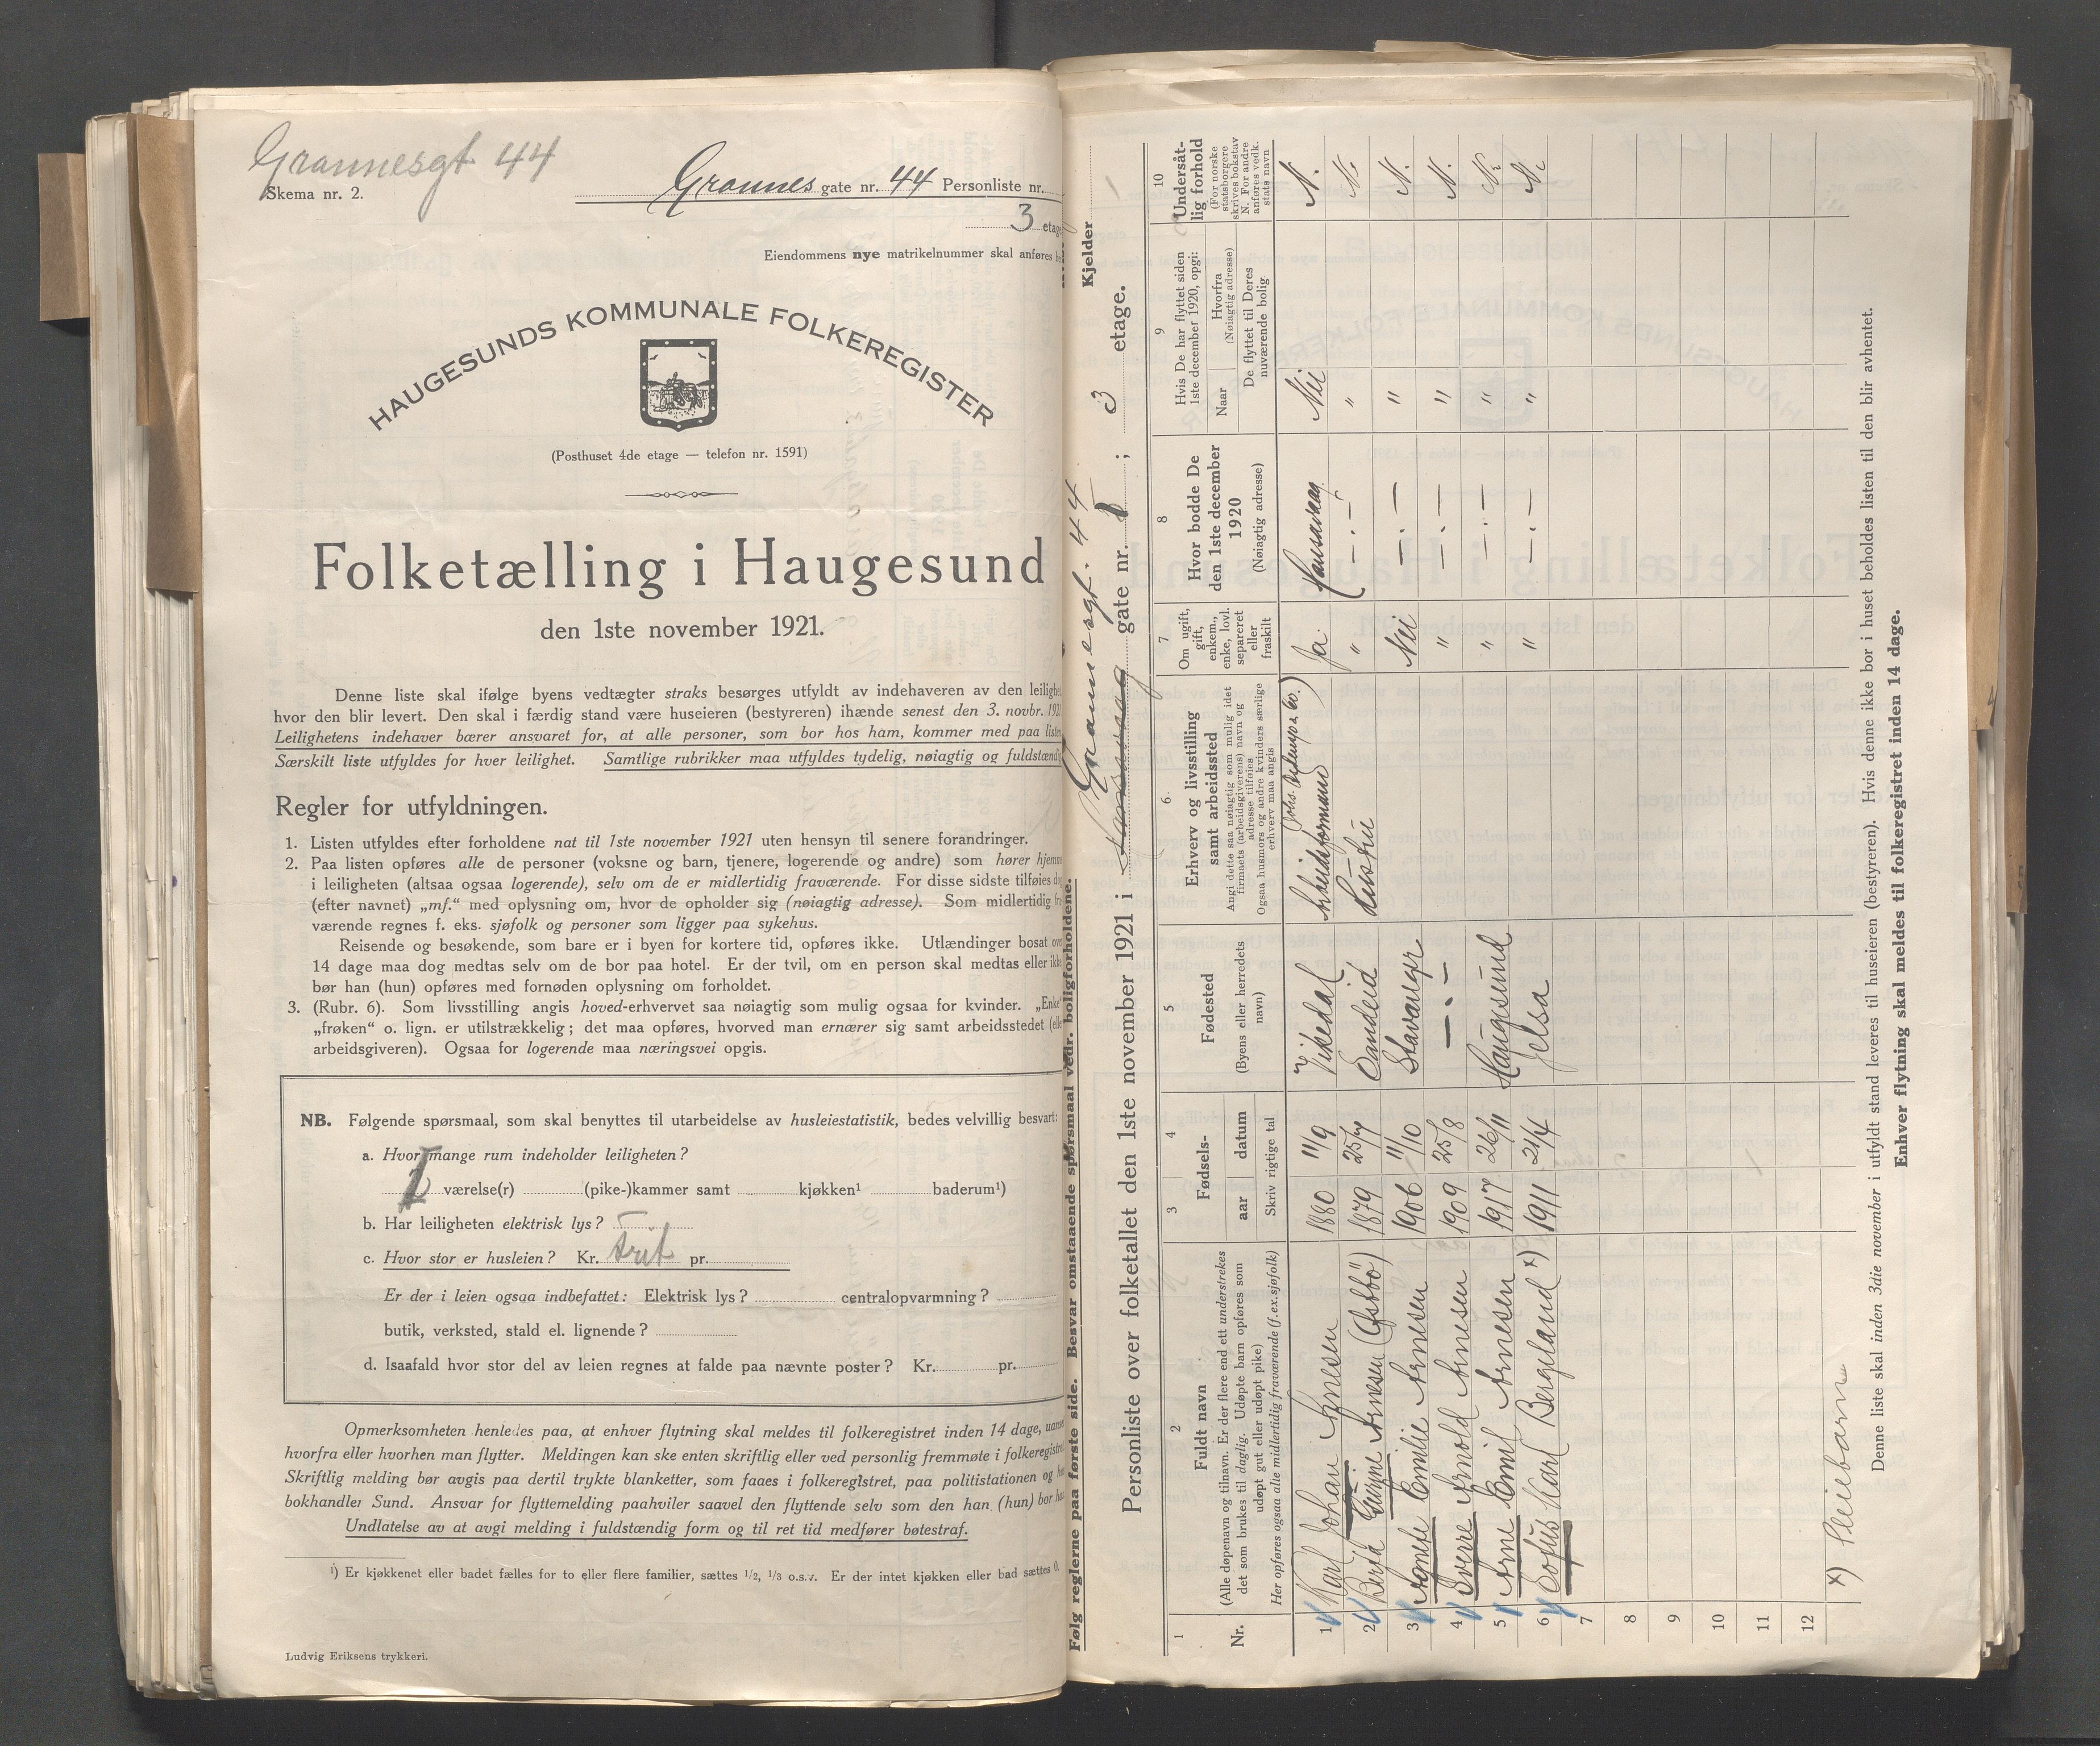 Grannesgt 44
Skema nr. 2.
Grannes gate nr. 44 Personliste nr.
3 etage
Eiendommens nye matrikelnummer skal anføres
HAUGESUNDS KOMMUNALE FOLKEREGISTER
(Posthuset 4de etage — telefon nr. 1591)
Folketælling i Haugesund
den 1ste november 1921.
Denne liste skal ifølge byens vedtægter straks besørges utfyldt av indehaveren av den leilighet
hvor den blir levert. Den skal i færdig stand være huseieren (bestyreren) ihænde senest den 3. novbr. 1921
Leilighetens indehaver bærer ansvaret for, at alle personer, som bor hos ham, kommer med paa listen
Særskilt liste utfyldes for hver leilighet. Samtlige rubrikker maa utfyldes tydelig, nøiagtig og fuldstændig
Regler for utfyldningen.
1. Listen utfyldes efter forholdene nat til 1ste november 1921 uten hensyn til senere forandringer.
2. Paa listen opføres alle de personer (voksne og barn, tjenere, logerende og andre) som hører hjemme
i leiligheten (altsaa ogsaa logerende), selv om de er midlertidig fraværende. For disse sidste tilføies da
(efter navnet) „mf.“ med oplysning om, hvor de opholder sig (nøiagtig adresse). Som midlertidig fra
værende regnes f. eks. sjøfolk og personer som ligger paa sykehus.
Reisende og besøkende, som bare er i byen for kortere tid, opføres ikke. Utlændinger bosat over
14 dage maa dog medtas selv om de bor paa hotel. Er der tvil, om en person skal medtas eller ikke
bør han (hun) opføres med fornøden oplysning om forholdet.
3. (Rubr. 6). Som livsstilling angis hoved-erhvervet saa nøiagtig som mulig ogsaa for kvinder. „Enke“
„frøken“ o. lign. er utilstrækkelig; det maa opføres, hvorved man ernærer sig samt arbeidsstedet (eller
arbeidsgiveren). Ogsaa for logerende maa næringsvei opgis.
NB. Følgende spørsmaal, som skal benyttes til utarbeidelse av husleiestatistik, bedes velvillig besvart:
a. Hvor mange rum indeholder leiligheten?
værelse(r) (pike-)kammer samt kjøkken¹ baderum¹)
b. Har leiligheten elektrisk lys?
c. Hvor stor er husleien? Kr. frit pr.
Er der i leien ogsaa indbefattet: Elektrisk lys? centralopvarmning?
butik, verksted, stald el. lignende?
d. Isaafald hvor stor del av leien regnes at falde paa nævnte poster? Kr. pr.
Opmerksomheten henledes paa, at enhver flytning skal meldes til folkeregistret inden 14 dage, uanset
hvorfra eller hvorhen man flytter. Meldingen kan ske enten skriftlig eller ved personlig fremmøte i folkeregistret
Skriftlig melding bør avgis paa dertil trykte blanketter, som faaes i folkeregistret, paa politistationen og hos
bokhandler Sund. Ansvar for flyttemelding paahviler saavel den flyttende selv som den han (hun) bor hos
Undlatelse av at avgi melding i fuldstændig form og til ret tid medfører bøtestraf.
¹) Er kjøkkenet eller badet fælles for to eller flere familier, sættes 1/2, 1/3 o.s.v. Er der intet kjøkken eller bad sættes 0.
Ludvig Eriksens trykkeri.
Følg reglerne paa første side. Besvar omstaaende spørsmaal vedr. boligforholdene.
Kjelder
Grannesgt. 44
Personliste over folketallet den 1ste november 1921 i Hansavaag gate nr. ; 3 etage.
1 2 3 4 5 6. 7 8 9 10
Nr.
Fuldt navn
(Alle døpenavn og tilnavn. Er der flere end ett understrekes
det som brukes til daglig. Udøpte barn opføres som
udøpt gut eller udøpt pike)
Her opføres ogsaa alle midlertidig fraværende (f. ex. sjøfolk)
Fødsels-
aar datum
Skriv rigtige tal
Fødested
(Byens eller herredets
navn)
Erhverv og livsstilling
samt arbeidssted
Angi dette saa nøiagtig som mulig idet
firmaets (arbeidsgiverens) navn og
adresse tilføies
Ogsaa husmors og andre kvinders særlige
erhverv maa angis
Om ugift,
gift,
enkem.,
enke, lovl.
separeret
eller
fraskilt
Hvor bodde De
den 1ste december
1920
(Nøiagtig adresse)
Hvis De har flyttet siden
1ste december 1920, opgi:
Naar Hvorfra
(Nøiagtig adresse)
De flyttet til Deres
nuværende bolig
Undersåt-
lig forhold
(For norske
statsborgere
skrives bokstav
N. For andre
anføres vedk.
stats navn
1 Karl Johan Arnesen 1880 11/9 Vikedal Arbeidsformand Ja. Hansavaag Nei N.
2 Berta Gurine Arnesen (Østbö) 1879 25/7 Sandeid Hustru " —.— " N.
3 Agnes Emilie Arnesen 1906 11/10 Stavanger Nei —.— " N.
4 Sverre Arnold Arnesen 1909 25/8 —.— " —.— " N.
5 Arne Emil Arnesen 1917 26/11 Haugesund " —.— " N.
6 Sofus Karl Bergeland x) 1911 21/4 Jelsa " —.— " N.
7
8
9
10
11
12
x) Pleiebarn
Denne liste skal inden 3die november i utfyldt stand leveres til huseieren (bestyreren). Hvis denne ikke bor i huset beholdes listen til den blir avhentet.
Enhver flytning skal meldes til folkeregistret inden 14 dage.